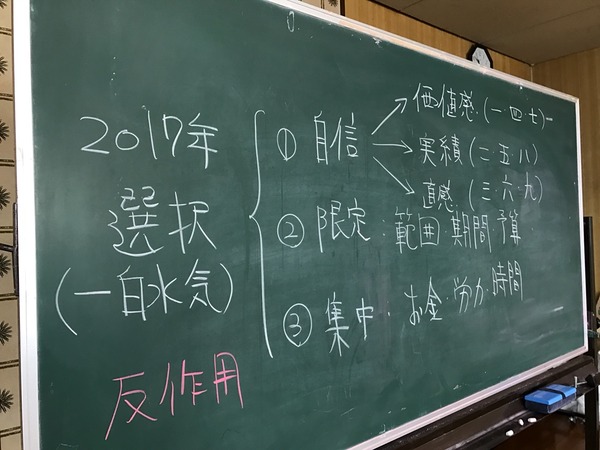 2017年
選択
(一白水気)
反作用
① 自信
価値感 (一・四・七)
実績 (二・五・八)
直感 (三・六・九)
② 限定：範囲・期間・予算
③ 集中・お金・労力・時間